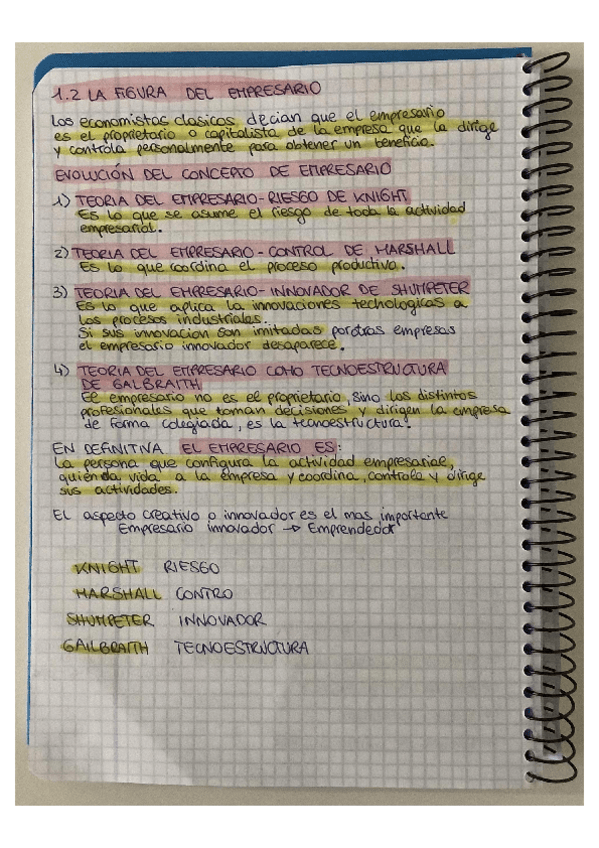 1.2 LA FIGURA DEL EMPRESARIO
Los economistas clasicos decian que el empresario
es el proprietario o capitalista de la empresa que la dirige
y controla personalmente para obtener un beneficio.
EVOLUCIÓN DEL CONCEPTO DE EMPRESARIO
1) TEORIA DEL EMPRESARIO-RIESGO DE KNIGHT
Es lo que se asume el riesgo de toda la actividad
empresarial.
2) TEORIA DEL EMPRESARIO-CONTROL DE MARSHALL
Es lo que coordina el proceso productivo.
3) TEORIA DEL EMPRESARIO-INNOVADOR DE SHUMPETER
Es lo que aplica la innovaciones techologicas a
los procesos industriales.
Si sus innovacion son imitadas por otras empresas
el empresario innovador desaparece.
4) TEORIA DEL EMPRESARIO COMO TECNOESTRUCTURA
DE GALBRAITH
El empresario no es el proprietario, sino los distintos
profesionales que toman decisiones y dirigen la empresa
de forma colegiada, es la tecnoestructura!
EN DEFINITIVA EL EMPRESARIO ES:
La persona que configura la actividad empresarial,
quien da vida a la empresa y coordina, controla y dirige
sus actividades.
El aspecto creativo o innovador es el mas importante
Empresario innovador → Emprendedor
KNIGHT RIESGO
MARSHALL CONTRO
SHUMPETER INNOVADOR
GAILBRAITH TECNOESTRUCTURA